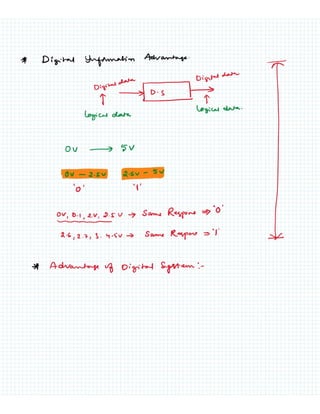 * Digital Information Advantage
Digital data
D.S
Digital data
Logical data
Logical data.
0V → 5V
0V - 2.5V 2.5V - 5V
'0' '1'
0V, 0.1, 2V, 2.5V → Same Respone ⇒ '0'
2.6, 2.7, 3. 4.5V → Same Respone = '1'
* Advantage of Digital System :-